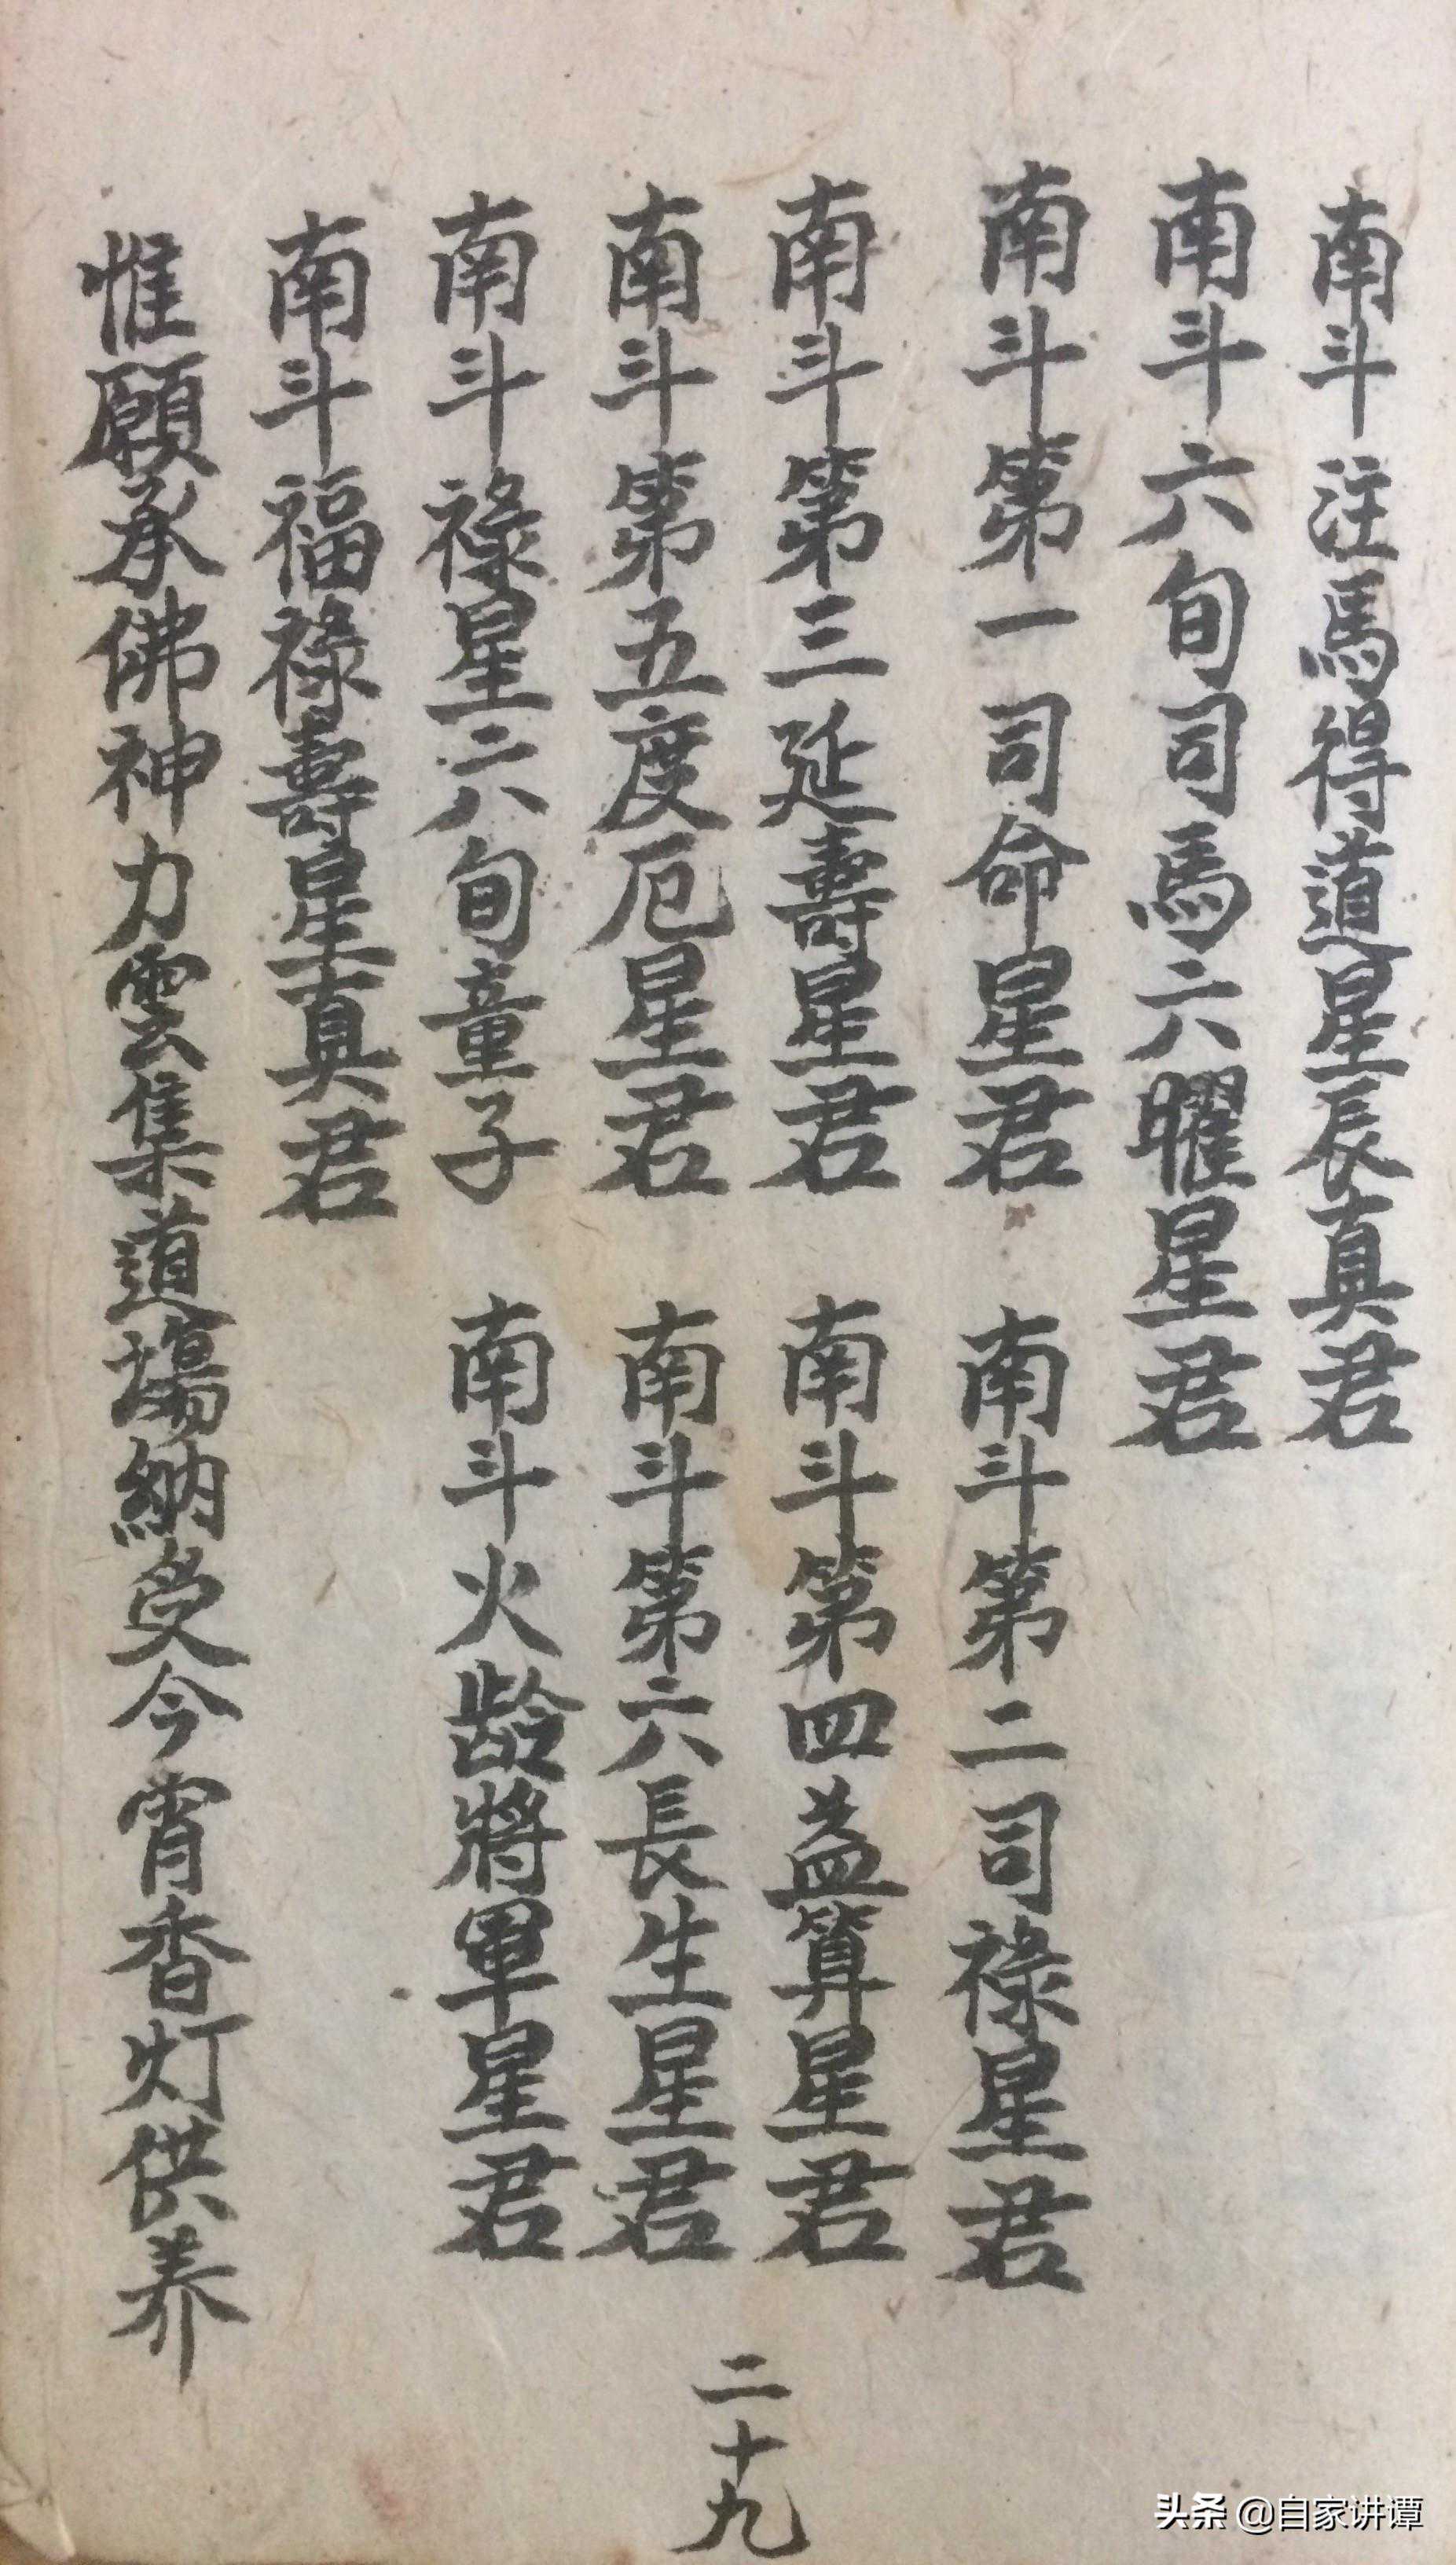 南斗注馬得道星辰真君
南斗六旬司馬六曜星君
南斗第一司命星君　南斗第二司祿星君
南斗第三延壽星君　南斗第四益算星君
南斗第五度厄星君　南斗第六長生星君
南斗祿星六旬童子　南斗火齡將軍星君
南斗福祿壽星真君
惟願承佛神力雲集道場納受今宵香灯供养
二十九
头条 @自家讲谭